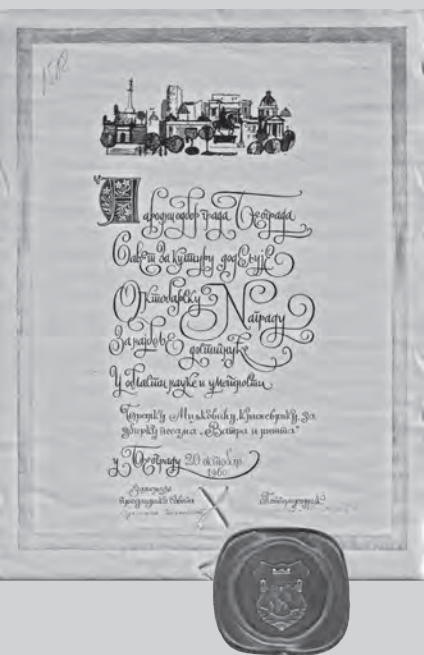 Народни одбор града Београда
Савет за културу додељује
Октобарску Награду
За најбоље достигнуће
У области науке и уметности
Бранку Миљковићу, књижевнику, за
збирку песама „Ватра и ништа"
у Београду 20 октобар
1960
председник Савета